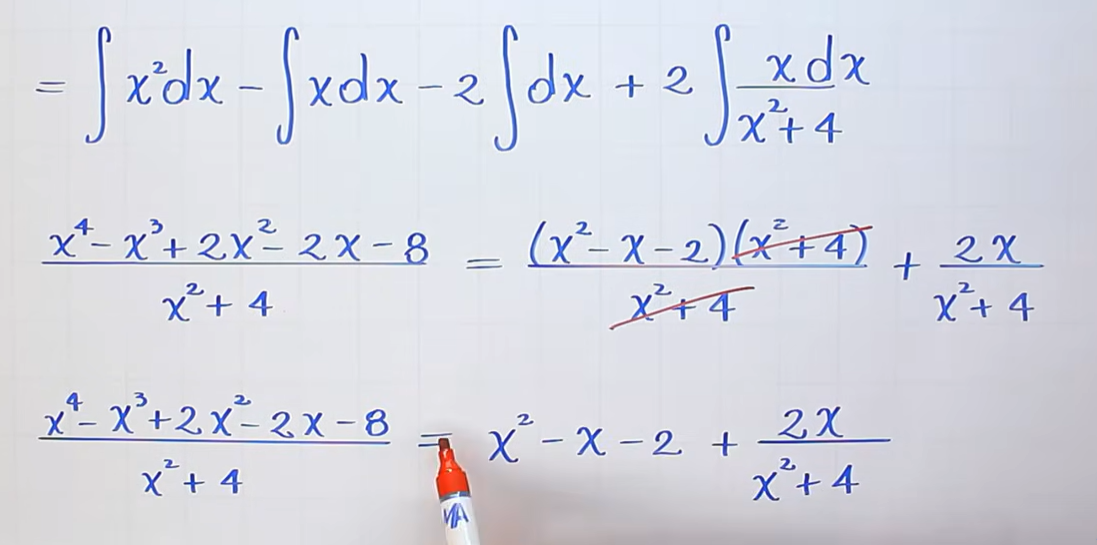 = ∫x²dx - ∫xdx - 2∫dx + 2∫ xdx/(x²+4)
(x⁴ - x³ + 2x² - 2x - 8)/(x² + 4) = ((x² - x - 2)(x² + 4))/(x² + 4) + 2x/(x² + 4)
(x⁴ - x³ + 2x² - 2x - 8)/(x² + 4) = x² - x - 2 + 2x/(x² + 4)
MA